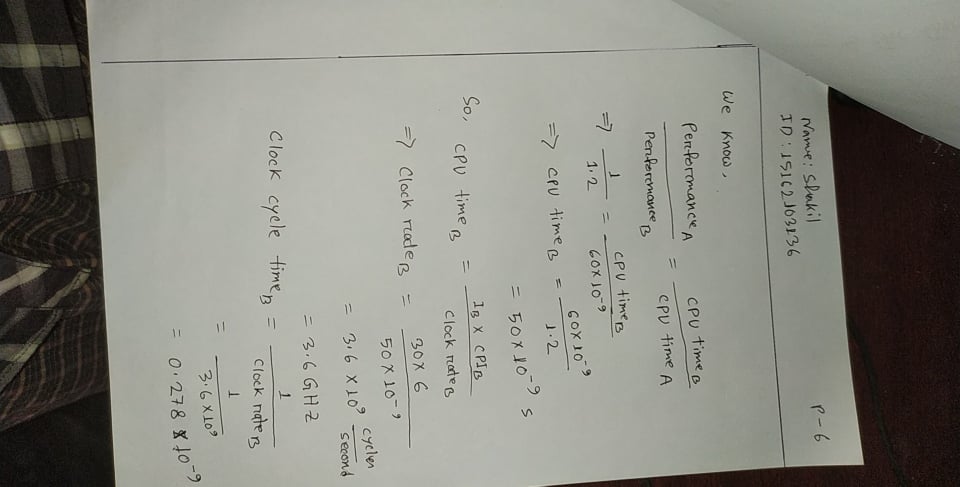 Name: Shakil
ID: 15162103136
P-6
We know,
Performance A / Performance B = CPU time B / CPU time A
=> 1 / 1.2 = CPU time B / 60 × 10^-9
=> CPU time B = 60 × 10^-9 / 1.2
= 50 × 10^-9 s
So, CPU time B = I B × CPI B / Clock rate B
=> Clock rate B = 30 × 6 / 50 × 10^-9
= 3.6 × 10^9 cycles / second
= 3.6 GHZ
Clock cycle time B = 1 / Clock rate B
= 1 / 3.6 × 10^9
= 0.278 × 10^-9